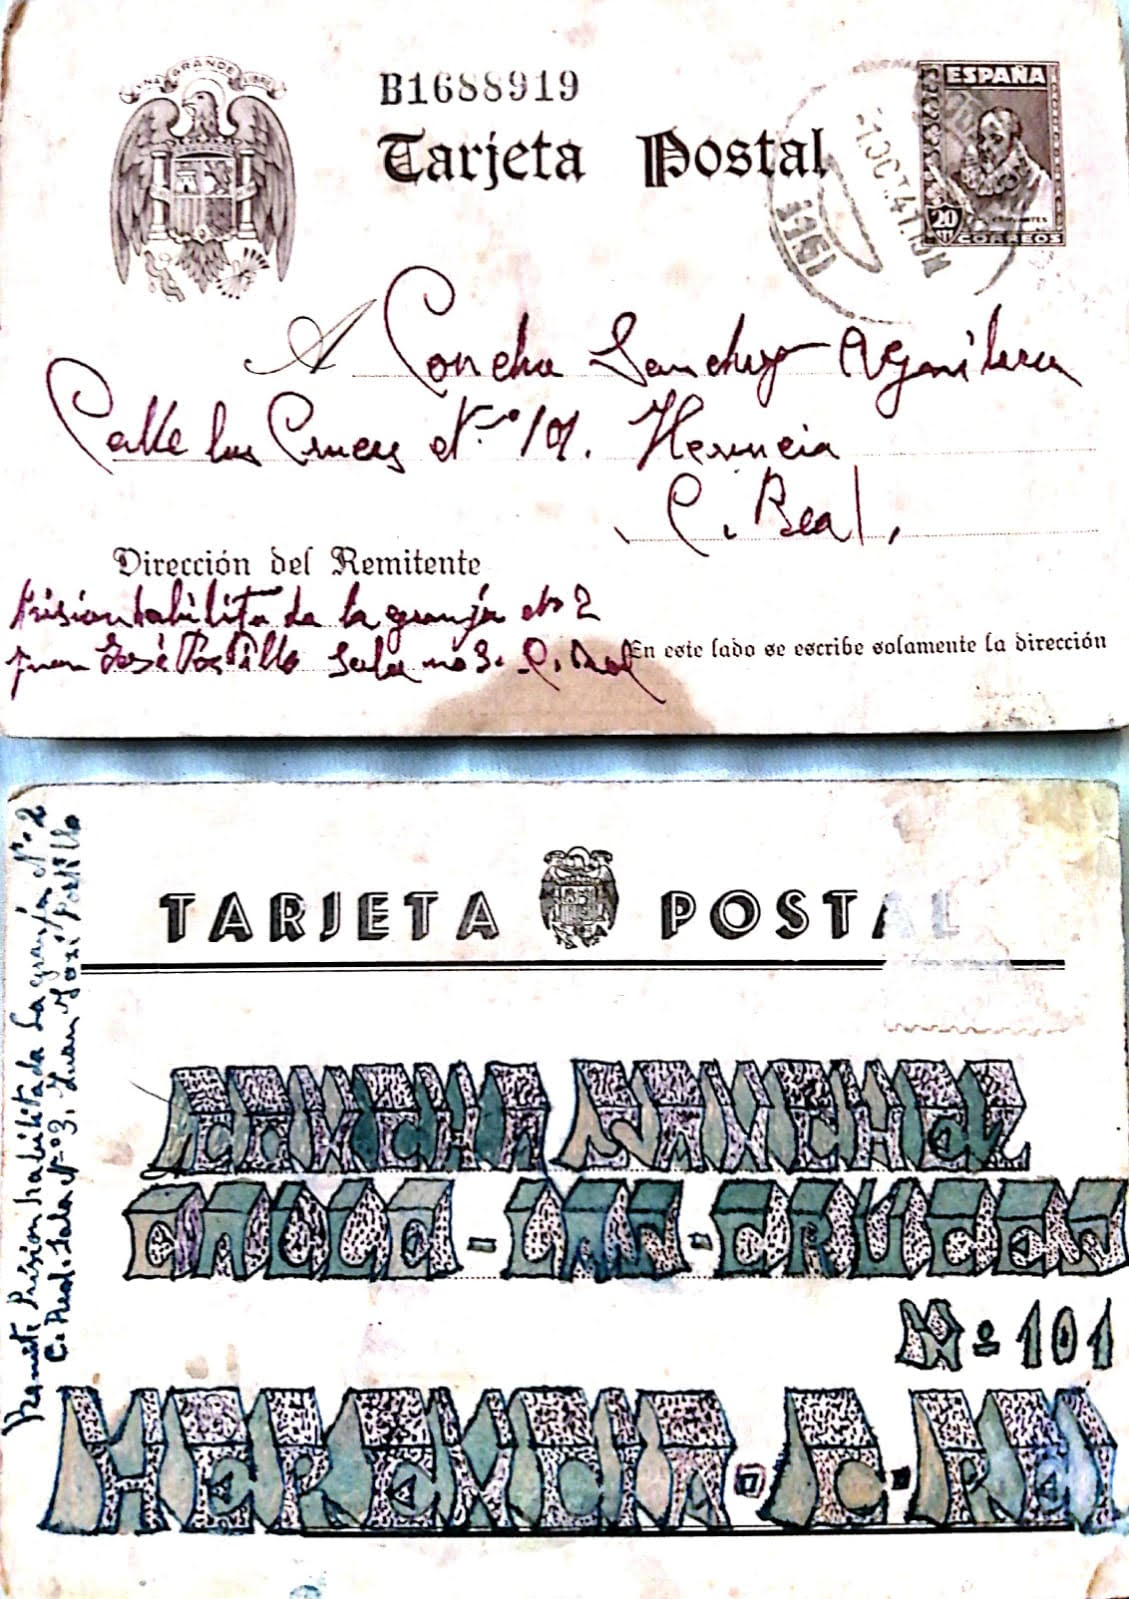 UNA GRANDE LIBRE
B1688919
Tarjeta Postal
ESPAÑA
20
CERVANTES
CORREOS
1 OCT. 41
A Concha Sanchez Aguilera
Calle las Cruces Nº 101. Herencia
C. Real.
Dirección del Remitente
Prision habilita da la granja Nº 2
Juan José Portillo Sala nº 3. C. Real
En este lado se escribe solamente la dirección
TARJETA POSTAL
CONCHA SANCHEZ
CALLE - LAS - CRUCES
Nº 101
HERENCIA - C - REAL
Remite Prision habilitada La granja Nº 2
C. Real. Sala Nº 3. Juan José Portillo